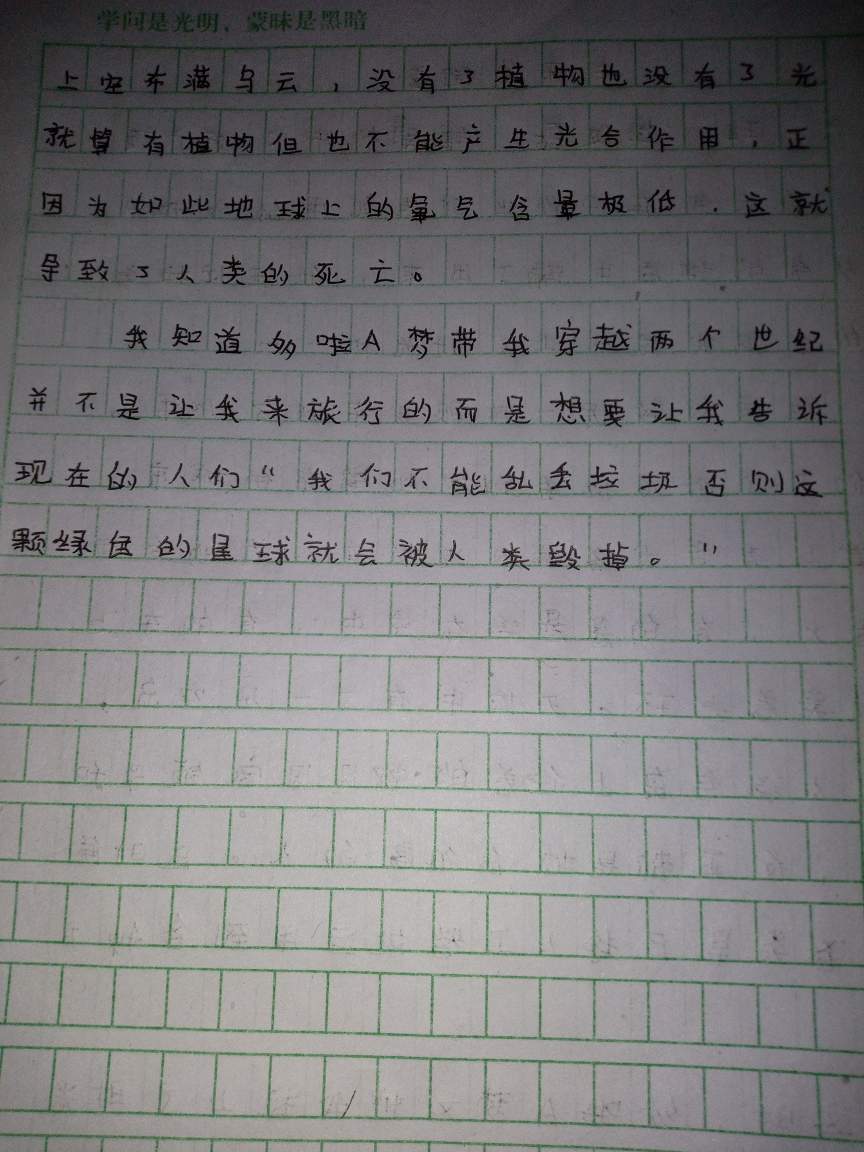 学问是光明，蒙昧是黑暗
上空布满乌云，没有了植物也没有了光
就算有植物但也不能产生光合作用，正
因为如此地球上的氧气含量极低．这就
导致了人类的死亡。
我知道多啦A梦带我穿越两个世纪
并不是让我来旅行的而是想要让我告诉
现在的人们“我们不能乱丢垃圾否则这
颗绿色的星球就会被人类毁掉。”